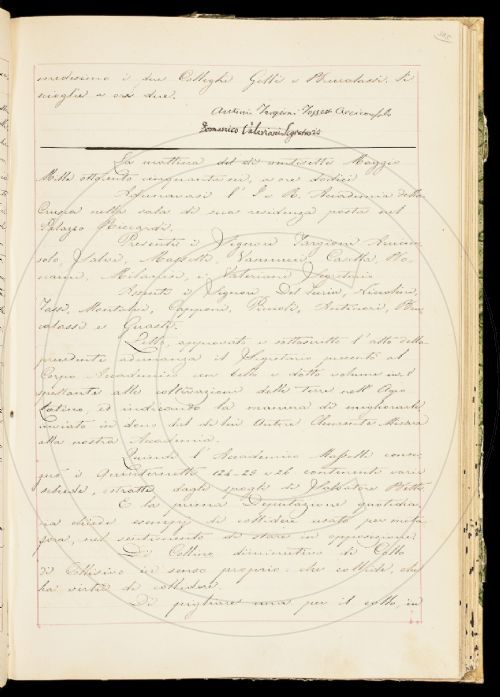 medesimo i due Colleghi Gelli e Brucalassi. Si
scioglie a ore due.
Antonio Targioni Tozzetti Arciconsolo
Domenico Valeriani Segretario
La mattina del dì ventisette Maggio
Mille ottocento cinquanta sei, a ore dodici
Adunavasi l' I. e R. Accademia della
Crusca nella sala di sua residenza posta nel
Palazzo Riccardi.
Presenti i Signori Targioni Arcicon
solo, Salvi, Masselli, Vannucci, Casella,
nucci, Milanesi, e Valeriani Segretario
Assenti i Signori Del Furia,
Tassi, Montalvi, Capponi, Antinori, Bru
calassi e Guasti.
Letto, approvato e sottoscritto l' atto della
precedente adunanza il Segretario presentò al
Corpo Accademico un bello e dotto volume
spettante alla coltivazione delle terre nell' Agro
Latino, ed indicando la maniera di migliorarla
inviato in dono dal di lui Autore Clemente
alla nostra Accademia.
Quindi l' Accademico Masselli conse
gnò i Quinternetti 124-25 e 26 contenenti varie
schede, estratte dagli spogli di Salvatore Betti.
E la prima Deputazione quotidia
na chiede esempi di collidere usato per meta
fora, nel sentimento di stare in opposizione.
Di Collino diminutivo di Collo
Di Collisivo in senso proprio: che collide, che
ha virtù di collidere.
Di pigliare uno per il collo, in